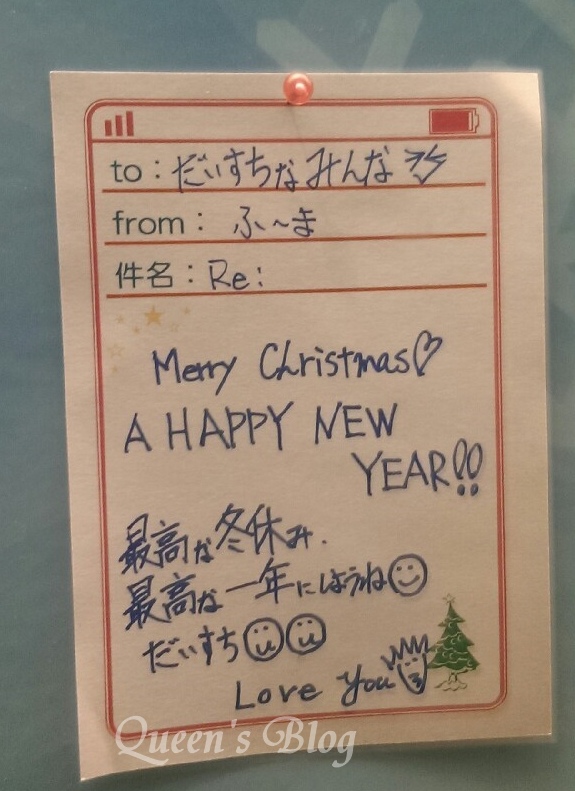 to：だいすちなみんな
from： ふ〜ま
件名：Re:
Merry Christmas♡
A HAPPY NEW
YEAR!!
最高な冬休み.
最高な一年にしようね
だいすち
Love you
Queen's Blog